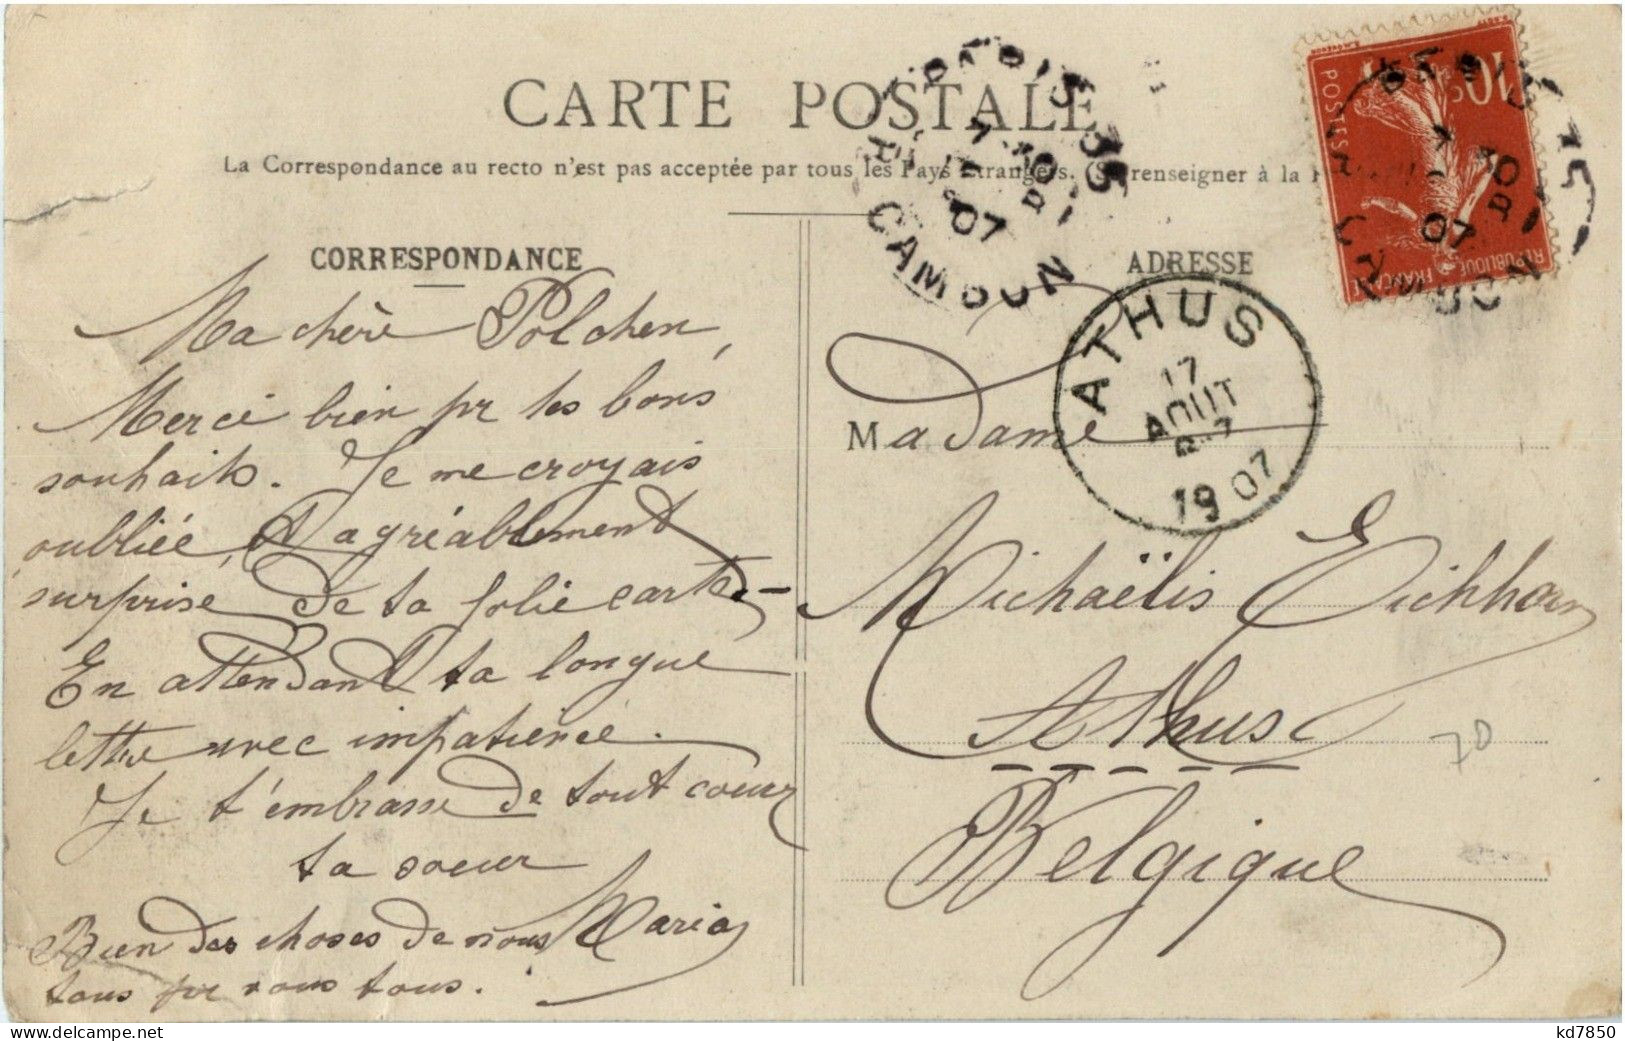 CARTE POSTALE
La Correspondance au recto n'est pas acceptée par tous les Pays Étrangers. renseigner à la
CORRESPONDANCE
Ma chère Polchen,
Merci bien pr tes bons
souhaits. Je me croyais
oubliée, et agréablement
surprise de ta jolie carte.-
En attendant ta longue
lettre avec impatience.
Je t'embrasse de tout coeur
ta soeur
Maria
Bien des choses de nous
tous pr vous tous.
ADRESSE
Madame
Michaëlis Eichhorn
Athus
Belgique
70
PARIS 35
7 10
07
R. CAMBON
ATHUS
17
AOUT
1907
10c
POSTES
REPUBLIQUE FRANÇAISE
PARIS 35
7 10
07
R. CAMBON
kd7850